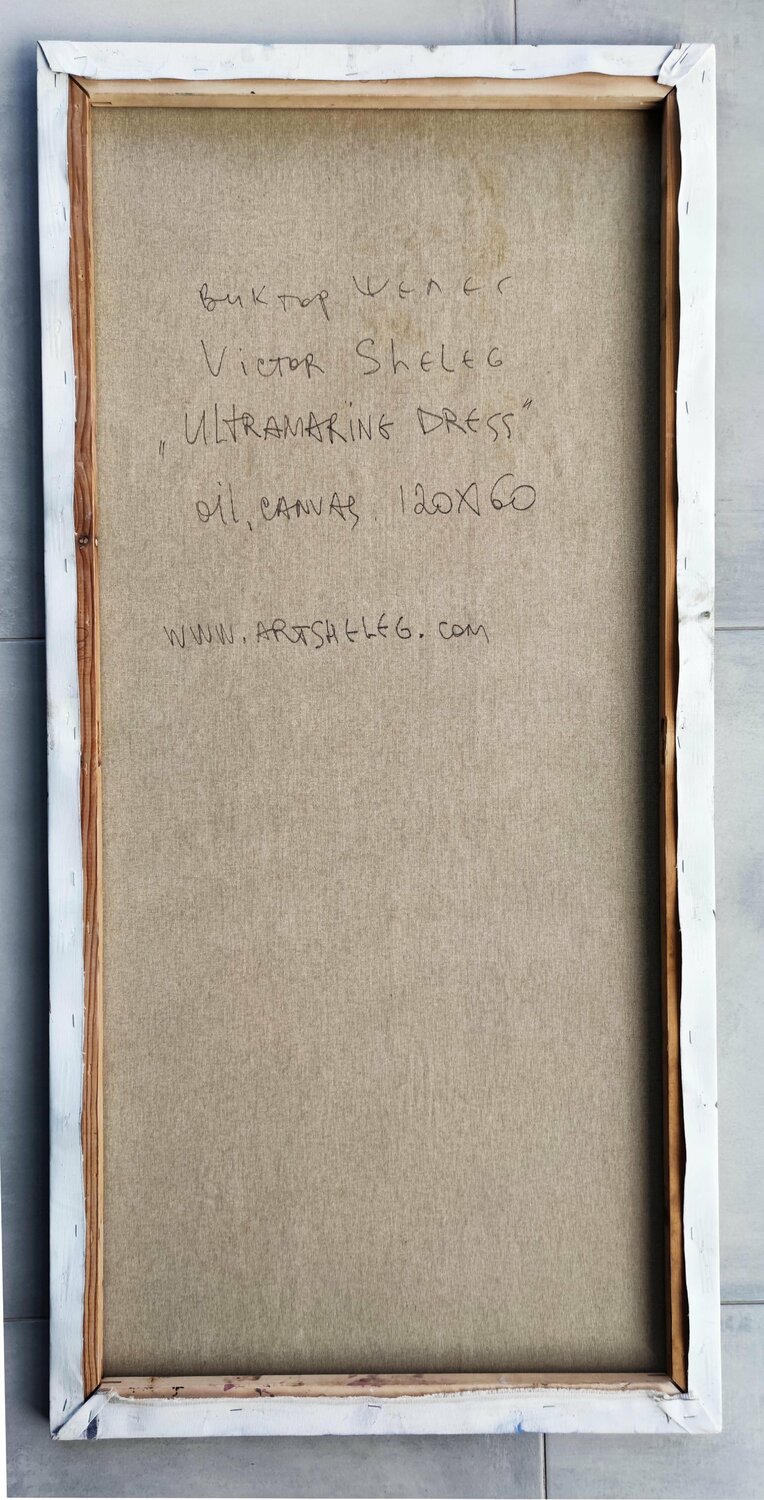 Виктор Шелег
Victor Sheleg
„Ultramarine Dress"
oil, canvas. 120x60
www.artsheleg.com